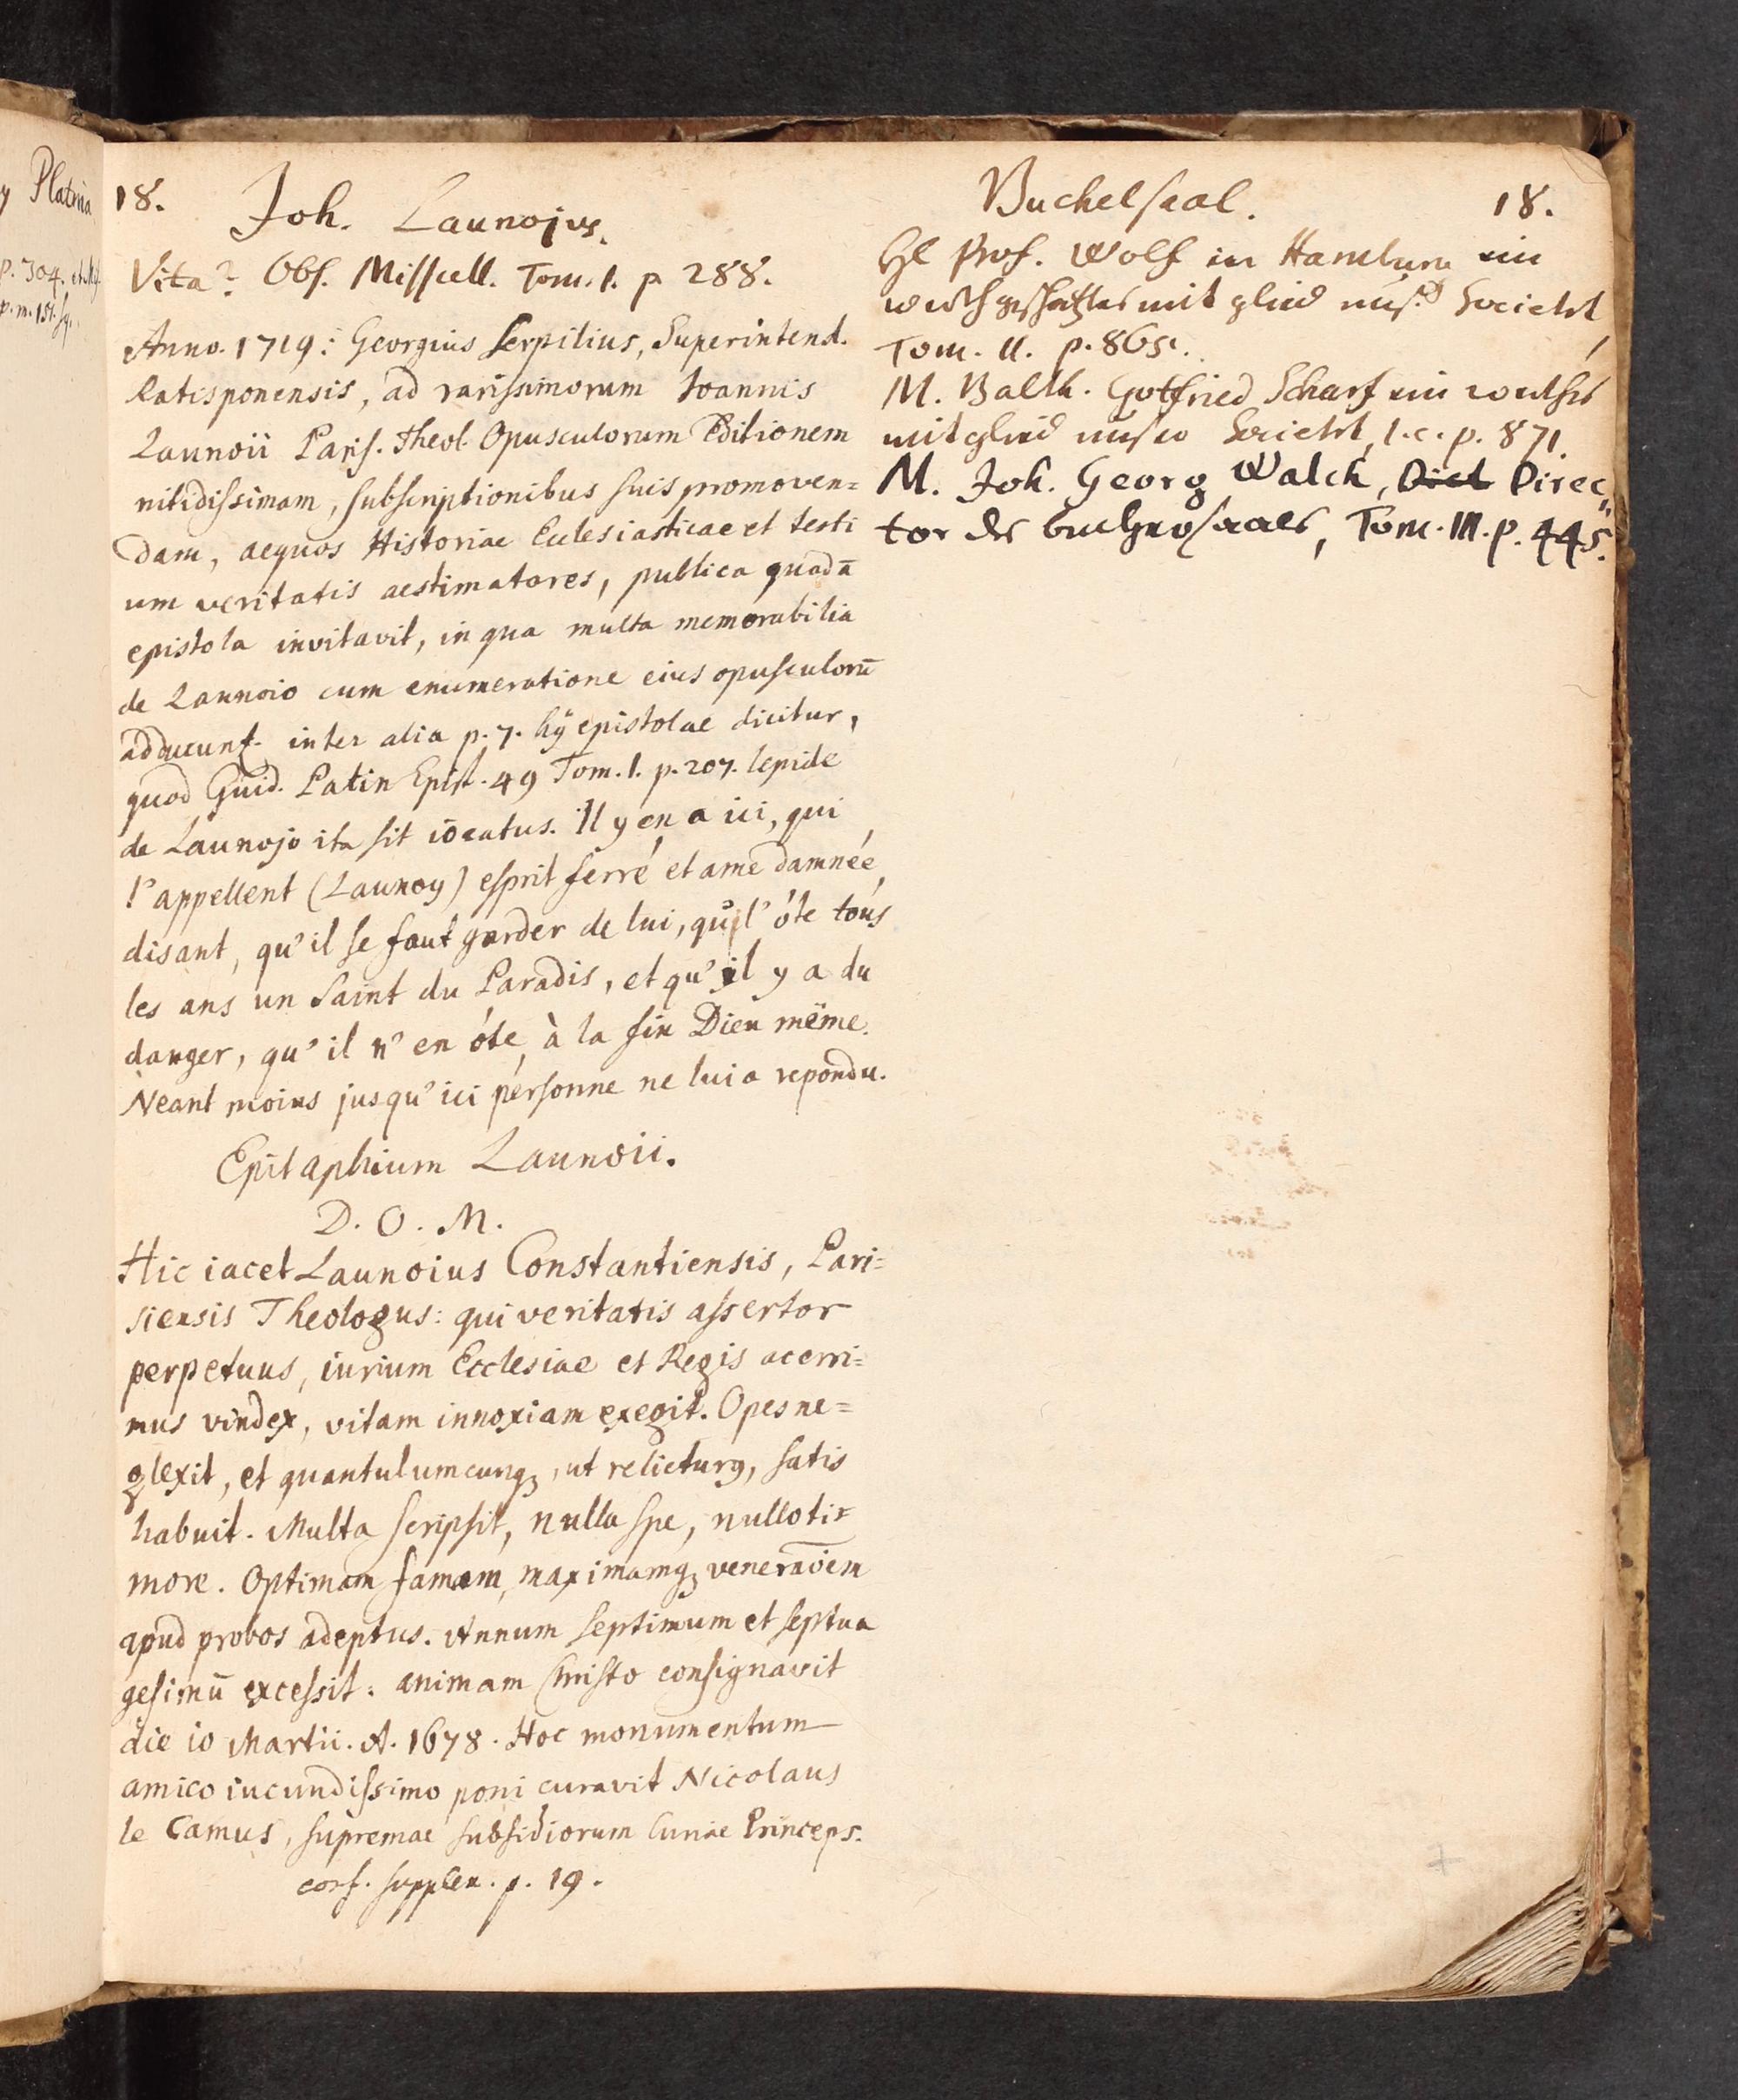 y Platina
p. 304. et sq.
p. m. 151. sq.
18.
Joh. Launojus.
Vita? Obs. Misscell. Tom. 1. p 288.
Anno. 1719: Georgius Serpilius, Superintend.
Ratisponensis, ad rarissimorum Ioannis
Launoii Paris. Theol. Opusculorum Editionem
nitidissimam, subscriptionibus suis promoven=
dam, aequos Historiae Eclesiasticae et testi
um veritatis aestimatores, publica quadā
epistola invitavit, in qua multa memorabilia
de Launoio cum enumeratione eius opusculorū
adducunt. inter alia p. 7. hÿ epistolae dicitur,
quod Guid. Patin Epist. 49 Tom. 1. p. 207. lepide
de Launojo ita sit iocatus. Il y en a ici, qui
l'appellent (Launoy) esprit ferré et ame damnée,
disant, qu'il se faut garder de lui, qu'il ôte tous
les ans un Saint du Paradis, et qu'il y a du
danger, qu'il n'en óte à la fin Dieu même.
Neant moins jusqu'ici personne ne lui a repondu.
Epitaphium Launoii.
D. O. M.
Hic iacet Launoius Constantiensis, Pari=
siensis Theologus: qui veritatis assertor
perpetuus, iurium Ecclesiae et Regis acerri=
mus vindex, vitam innoxiam exegit. Opes ne=
glexit, et quantulumcunq;, ut relicturg, satis
habuit. Multa scripsit, nulla spe, nullo ti=
more. Optimam famam, maximamq; veneraōem
apud probos adeptus. Annum septimum et septua
gesimū excessit: animam Christo consignavit
die 10 Martii. A. 1678. Hoc monumentum
amico iucundissimo poni curavit Nicolaus
le Camus, supremae subsidiorum Curiae Princeps.
conf. supplem. p. 19.
Buchelsaal. 18.
Hl Prof. Wolf in Hamburg ein
werthgeschatztes mitglied unsrd Societet
Tom. II. p. 865.
M. Balth. Gottfried Scharf ein werthes
mitglied unsrer Societet, l. c. p. 871.
M. Joh. Georg Walch, Dict Direc"
tor des buchersaales, Tom. III. p. 445.